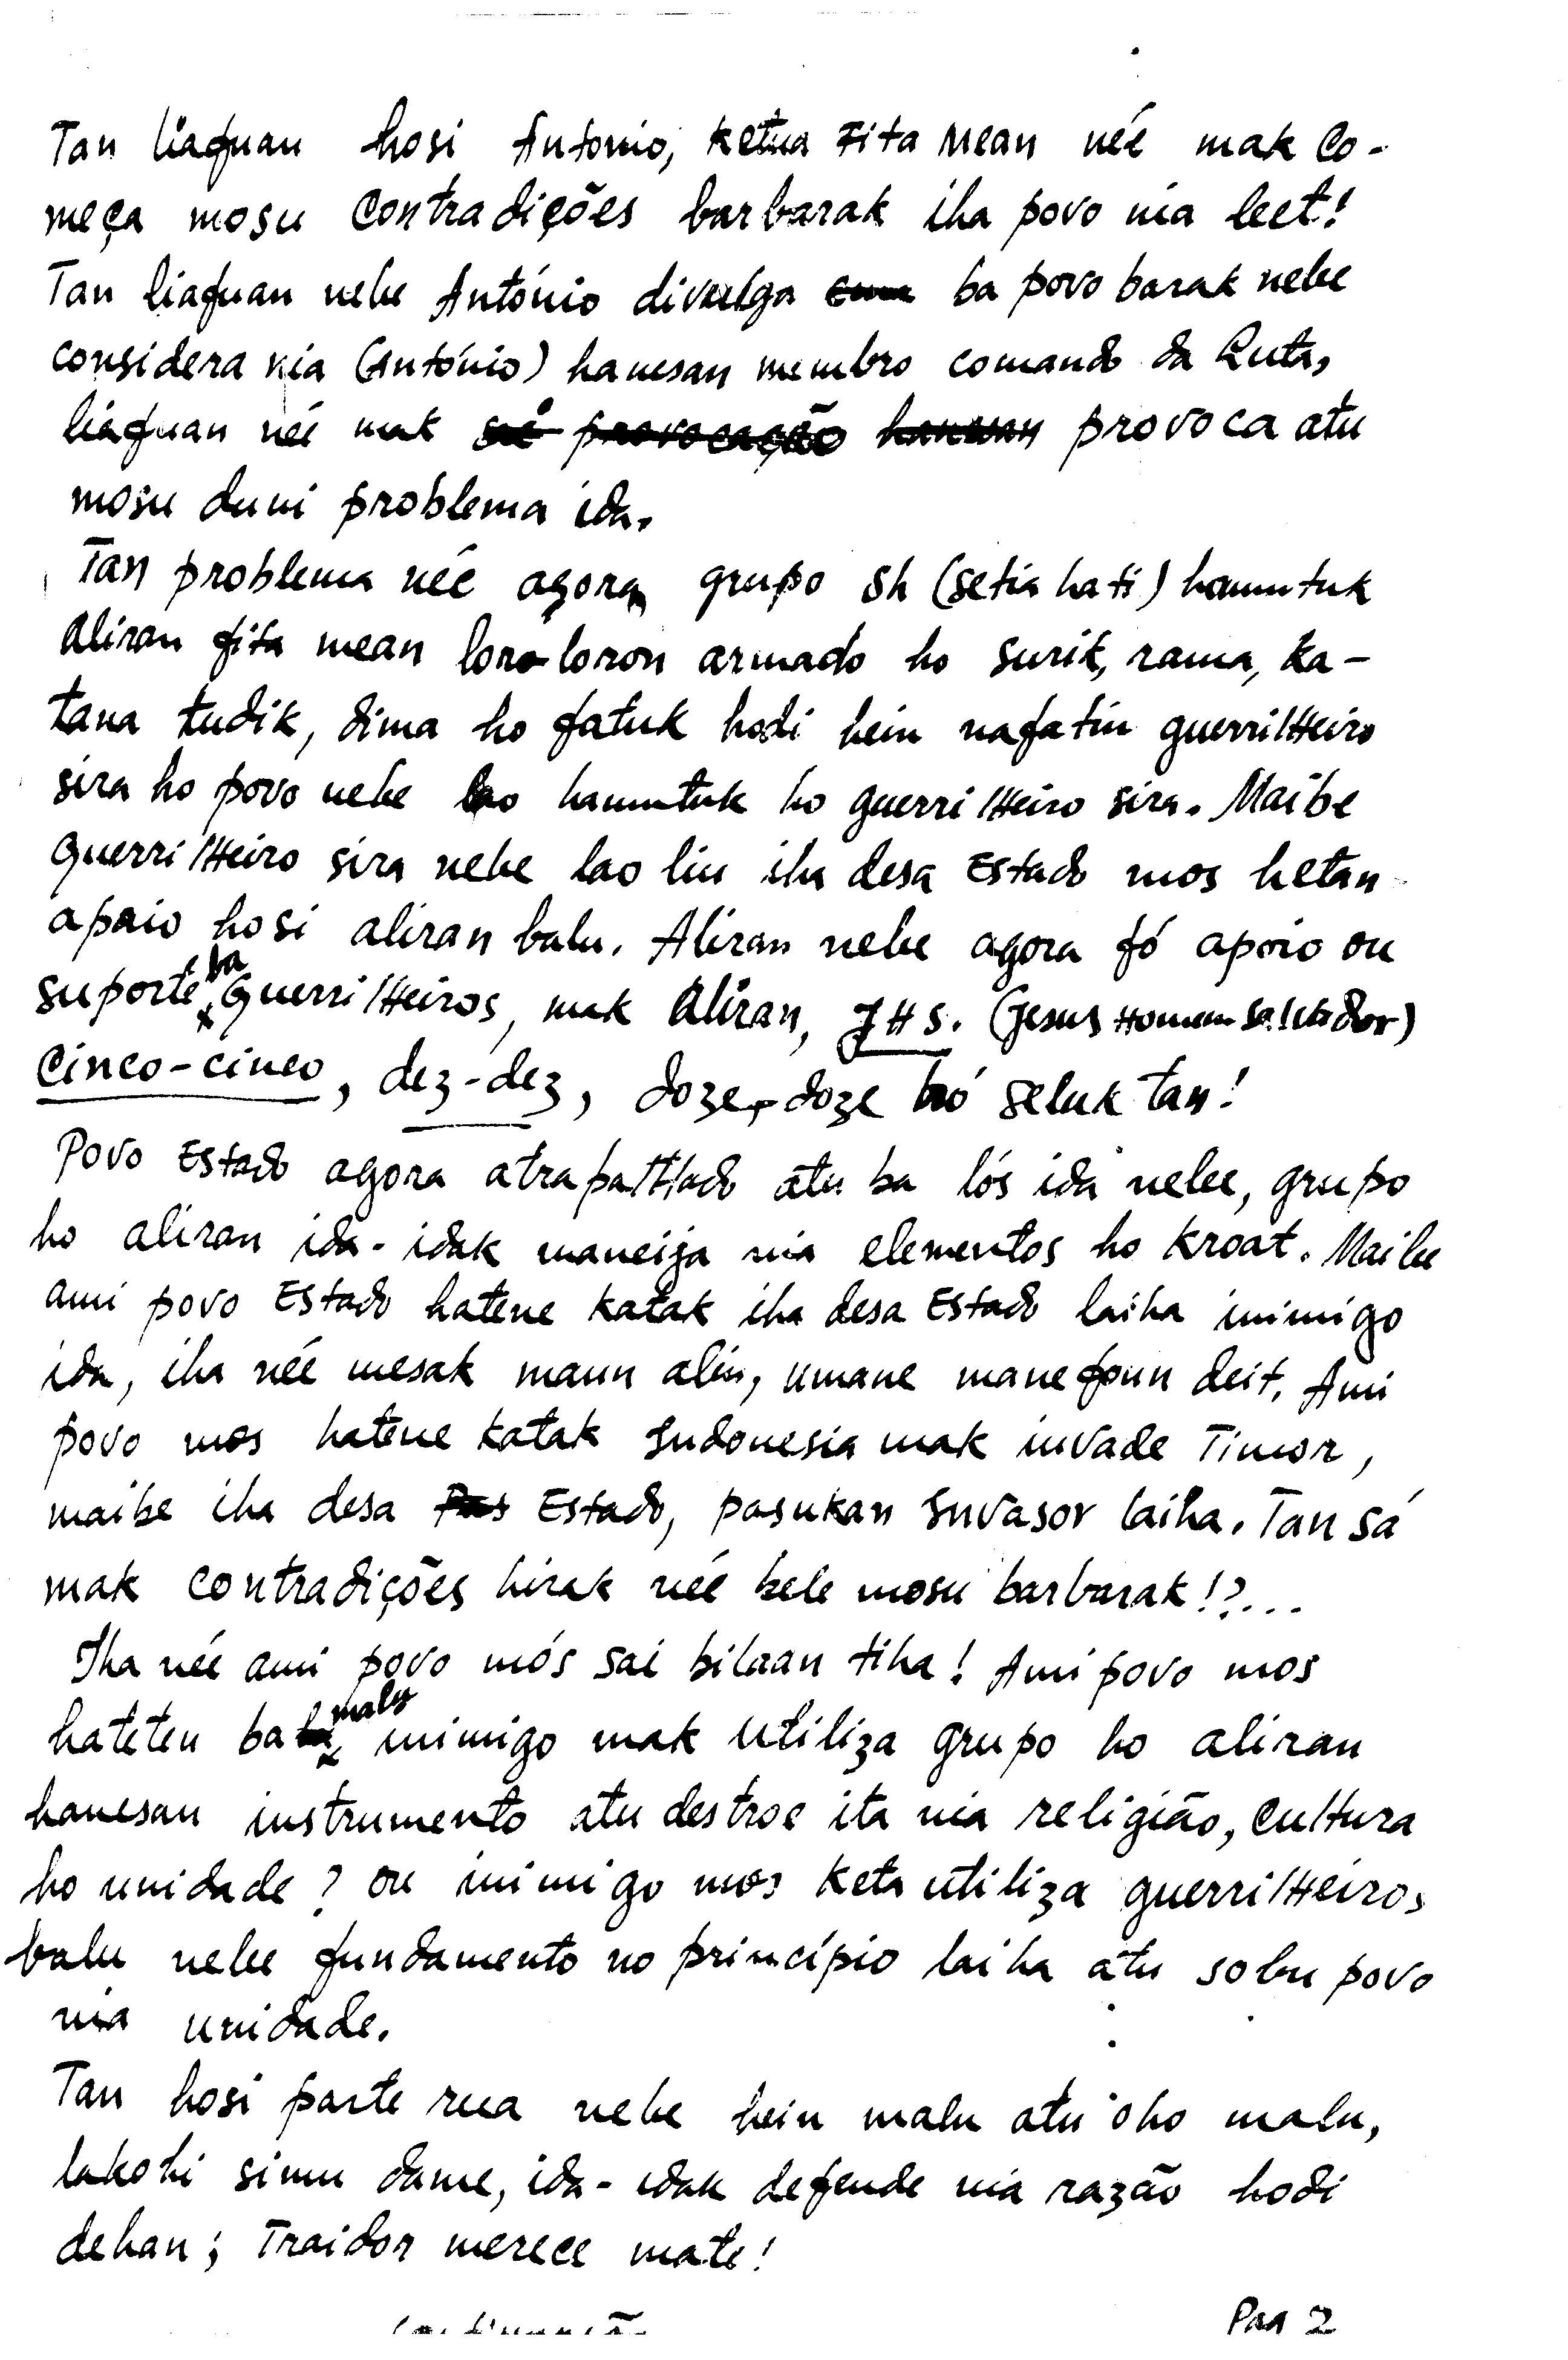 Tan liafuan hosi António, Ketua Fita Mean néé mak co-
meça mosu contradições barbarak iha povo nia leet!
Tan liafuan nebe António divulga ba povo barak nebe
considera nia (António) hanesan membro comando da Luta,
liafuan néé mak provoca atu
mosu duni problema ida.
Tan problema néé agora grupo SH (Setia hati) hamutuk
aliran fita mean loro-loron armado ho surik, rama, ka-
tana tudik, dima ho fatuk hodi hein nafatin guerrilheiro
sira ho povo nebe lao hamutuk ho guerrilheiro sira. Maibe
guerrilheiro sira nebe lao liu iha desa Estado mos hetan
apoio hosi aliran balu. Aliran nebe agora fó apoio ou
suporte ba guerrilheiros, mak aliran, JHS. (Jesus Homem Salvador)
cinco-cinco, dez-dez, doze-doze hó seluk tan!
Povo Estado agora atrapalhado atu ba lós ida nebe, grupo
ho aliran ida-idak maneija nia elementos ho kroat. Maibe
ami povo Estado hatene katak iha desa Estado laiha inimigo
ida, iha néé mesak maun alin, umane manefoun deit. Ami
povo mos hatene katak Indonesia mak invade Timor,
maibe iha desa Estado, pasukan Invasor laiha. Tan sá
mak contradições hirak néé bele mosu barbarak!?...
Iha néé ami povo mós sai bilaan tiha! Ami povo mos
hateten ba malu inimigo mak utiliza grupo ho aliran
hanesan instrumento atu destroe ita nia religião, cultura
ho unidade? ou inimigo mos keta utiliza guerrilheiros
balu nebe fundamento no princípio laiha atu sobu povo
nia unidade.
Tan hosi parte rua nebe hein malu atu oho malu,
lakohi simu dame, ida-idak defende nia razão hodi
dehan; Traidor merece mate!
Pag 2